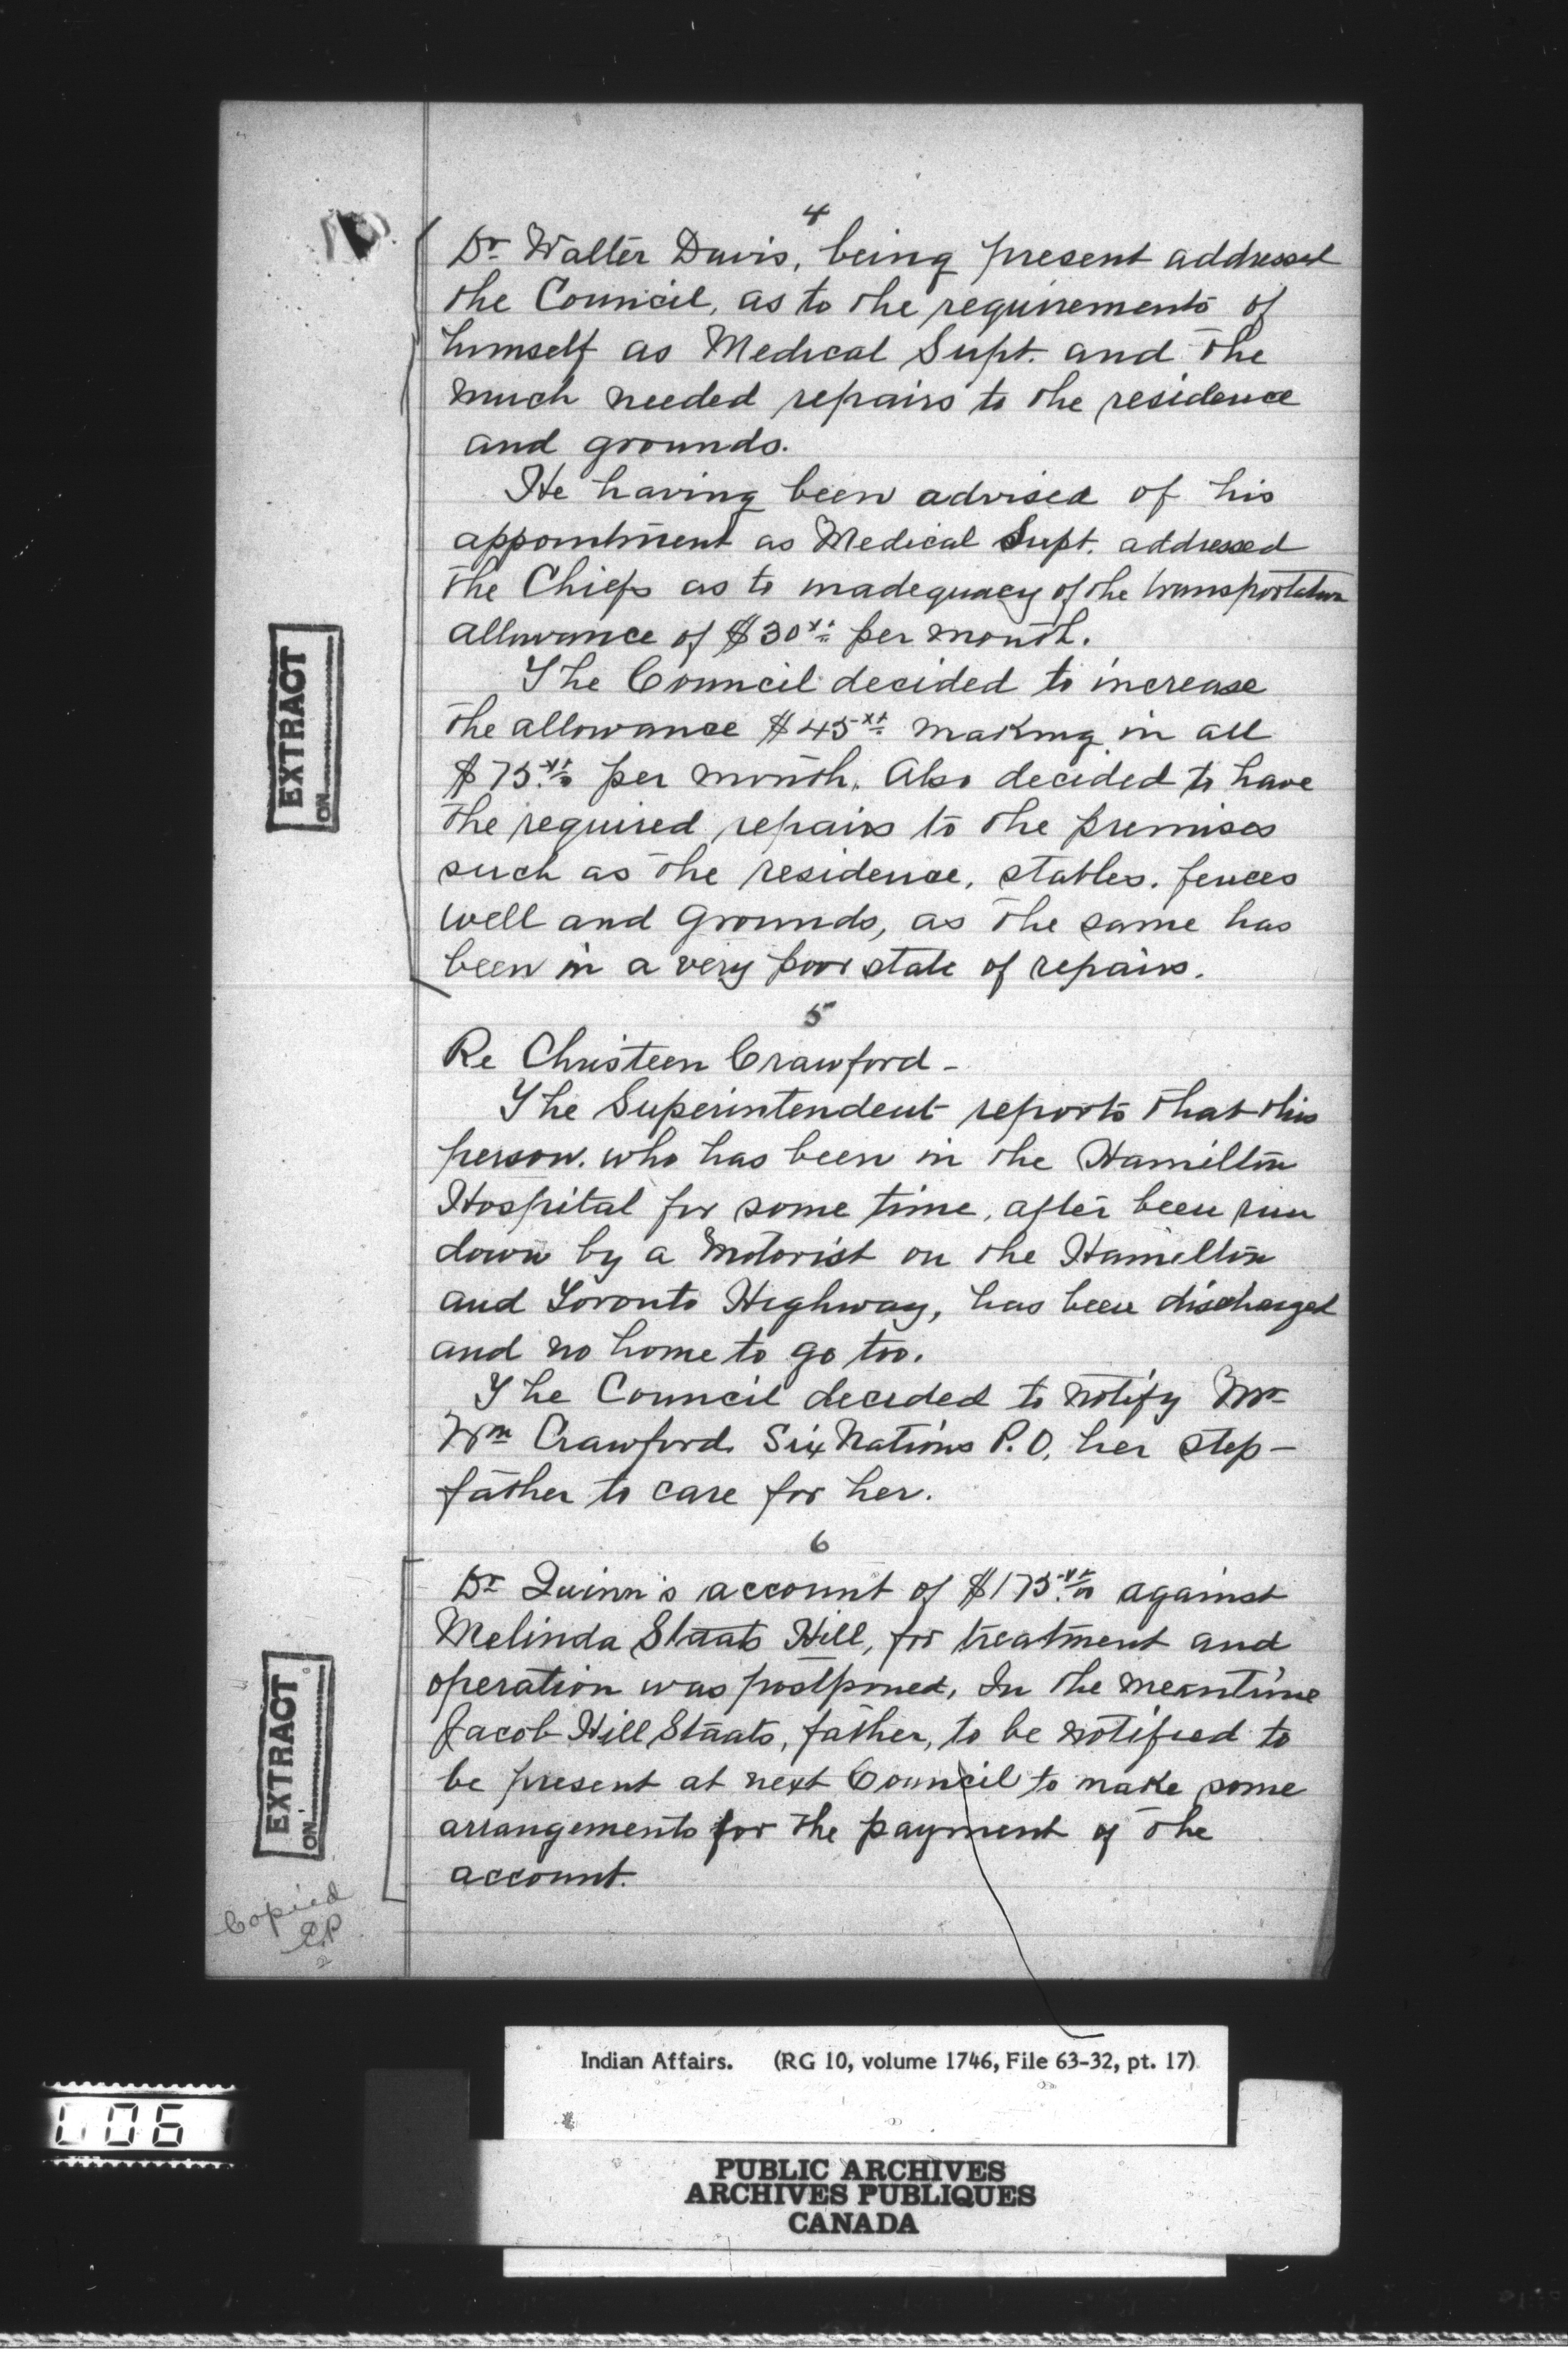 4
Dr Walter Davis, being present addressed
the Council, as to the requirements of
himself as Medical Supt. and the
much needed repairs to the residence
and grounds.
He having been advised of his
appointment as Medical Supt. addressed
the Chiefs as to inadequacy of the transportation
allowance of $30 xx/00 per month.
The Council decided to increase
the allowance $45 xx/00 making in all
$75 xx/00 per month. Also decided to have
the required repairs to the premises
such as the residence, stables, fences
well and grounds, as the same has
been in a very poor state of repairs.
5
Re Christeen Crawford -
The Superintendent reports that this
person, who has been in the Hamilton
Hospital for some time, after been run
down by a motorist on the Hamilton
and Toronto Highway, has been discharged
and no home to go too.
The Council decided to notify Mr
Wm Crawford Six Nations P.O. her step-
father to care for her.
6
Dr Quinn's account of $175 xx/00 against
Melinda Staats Hill, for treatment and
operation was postponed, In the meantime
Jacob Hill Staats, father, to be notified to
be present at next Council to make some
arrangements for the payment of the
account.
EXTRACT
ON
EXTRACT
ON
Copied
Indian Affairs. (RG 10, volume 1746, File 63-32, pt. 17)
PUBLIC ARCHIVES
ARCHIVES PUBLIQUES
CANADA